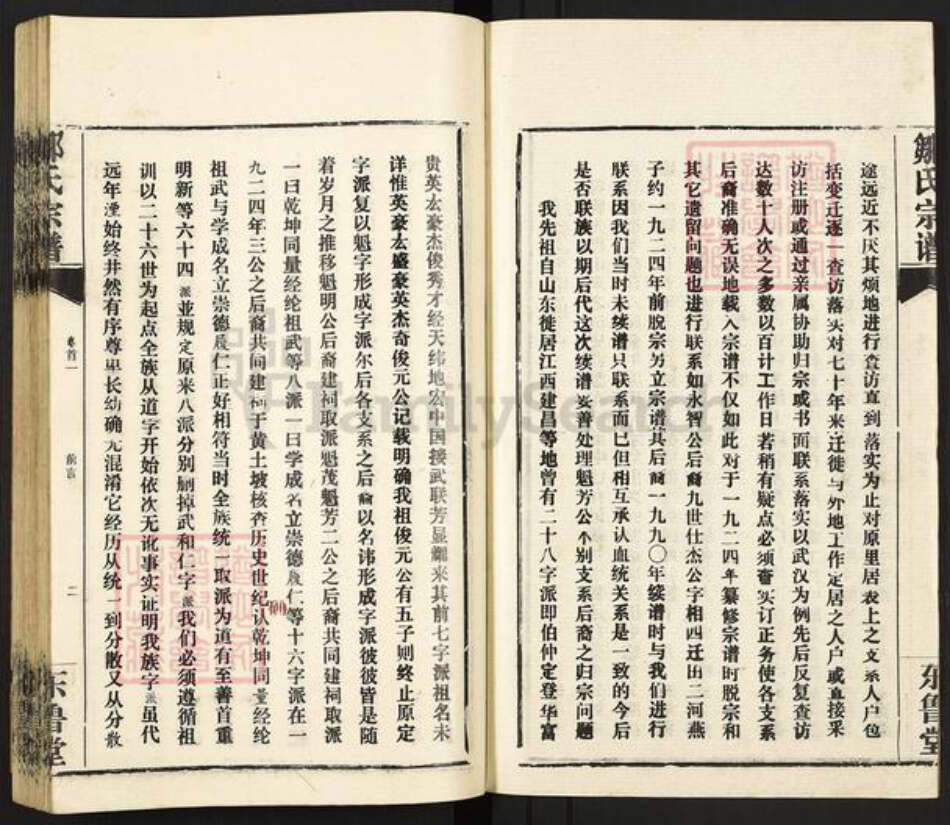 途远近不厌其烦地进行查访直到落实为止对原里居表上之文系人户包
括变迁逐一查访落实对七十年来迁徙与外地工作定居之人户或直接采
访注册或通过亲属协助归宗或书面联系落实以武汉为例先后反复查访
达数十人次之多数以百计工作日若稍有疑点必须审实订正务使各支系
后裔准确无误地载入宗谱不仅如此对于一九二四年纂修宗谱时脱宗和
其它遗留问题也进行联系如永智公后裔九世仕杰公字相四迁出二河燕
子约一九二四年前脱宗另立宗谱其后裔一九九〇年续谱时与我们进行
联系因我们当时未续谱只联系而已但相互承认血统关系是一致的今后
是否联族以期后代这次续谱妥善处理魁芳公个别支系后裔之归宗问题
我先祖自山东徙居江西建昌等地曾有二十八字派即伯仲定登华富
贵英太豪杰俊秀才经天纬地宏中国接武联芳显耀来其前七字派祖名未
详惟英豪太盛豪英杰奇俊元公记载明确我祖俊元公有五子则终止原定
字派复以魁字形成字派尔后各支系之后裔以名讳形成字派彼彼皆是随
着岁月之推移魁明公后裔建祠取派魁茂魁芳二公之后裔共同建祠取派
一曰乾坤同量经纶祖武等八派一曰学成名立崇德履仁等十六字派在一
九二四年三公之后裔共同建祠于黄土坡核查历史世纪认乾坤同量经纶
祖武与学成名立崇德履仁正好相符当时全族统一取派为道有至善首重
明新等六十四派並规定原来八派分别删掉武和仁字派我们必须遵循祖
训以二十六世为起点全族从道字开始依次无讹事实证明我族字派虽代
远年湮始终井然有序尊卑长幼确无混淆它经历从统一到分散又从分散
邹氏宗谱
卷首一
前言
二
东鲁堂
邹氏宗谱
东鲁堂
FamilySearch